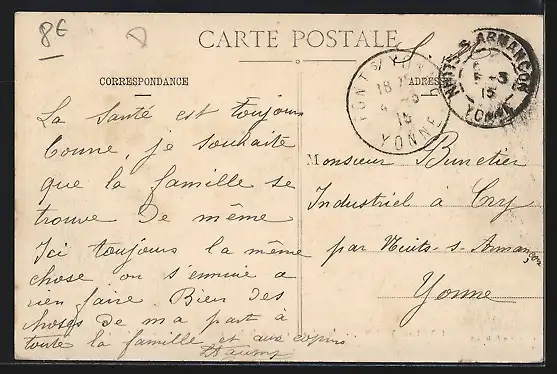 8€
CARTE POSTALE
CORRESPONDANCE
ADRES
PONT S/ YONNE
18
4 -3
15
YONNE
NUITS-S-ARMANÇON
5 -3
15
YONNE
La santé est toujours
bonne, je souhaite
que la famille se
trouve de même
Ici toujours la même
chose on s'ennuie a
rien faire. Bien des
choses de ma part à
toute la famille et aux copins
Monsieur Brunetier
Industriel à Cry
par Nuits-s-Armançon
Yonne